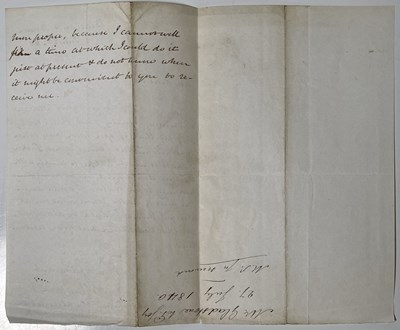 mon proper, because I cannot well
plan a time at which I could do it
just at present & do not know when
it might be convenient to you to re-
ceive me.
Mr Gladstone
27 July 1840
M.P. for Newark